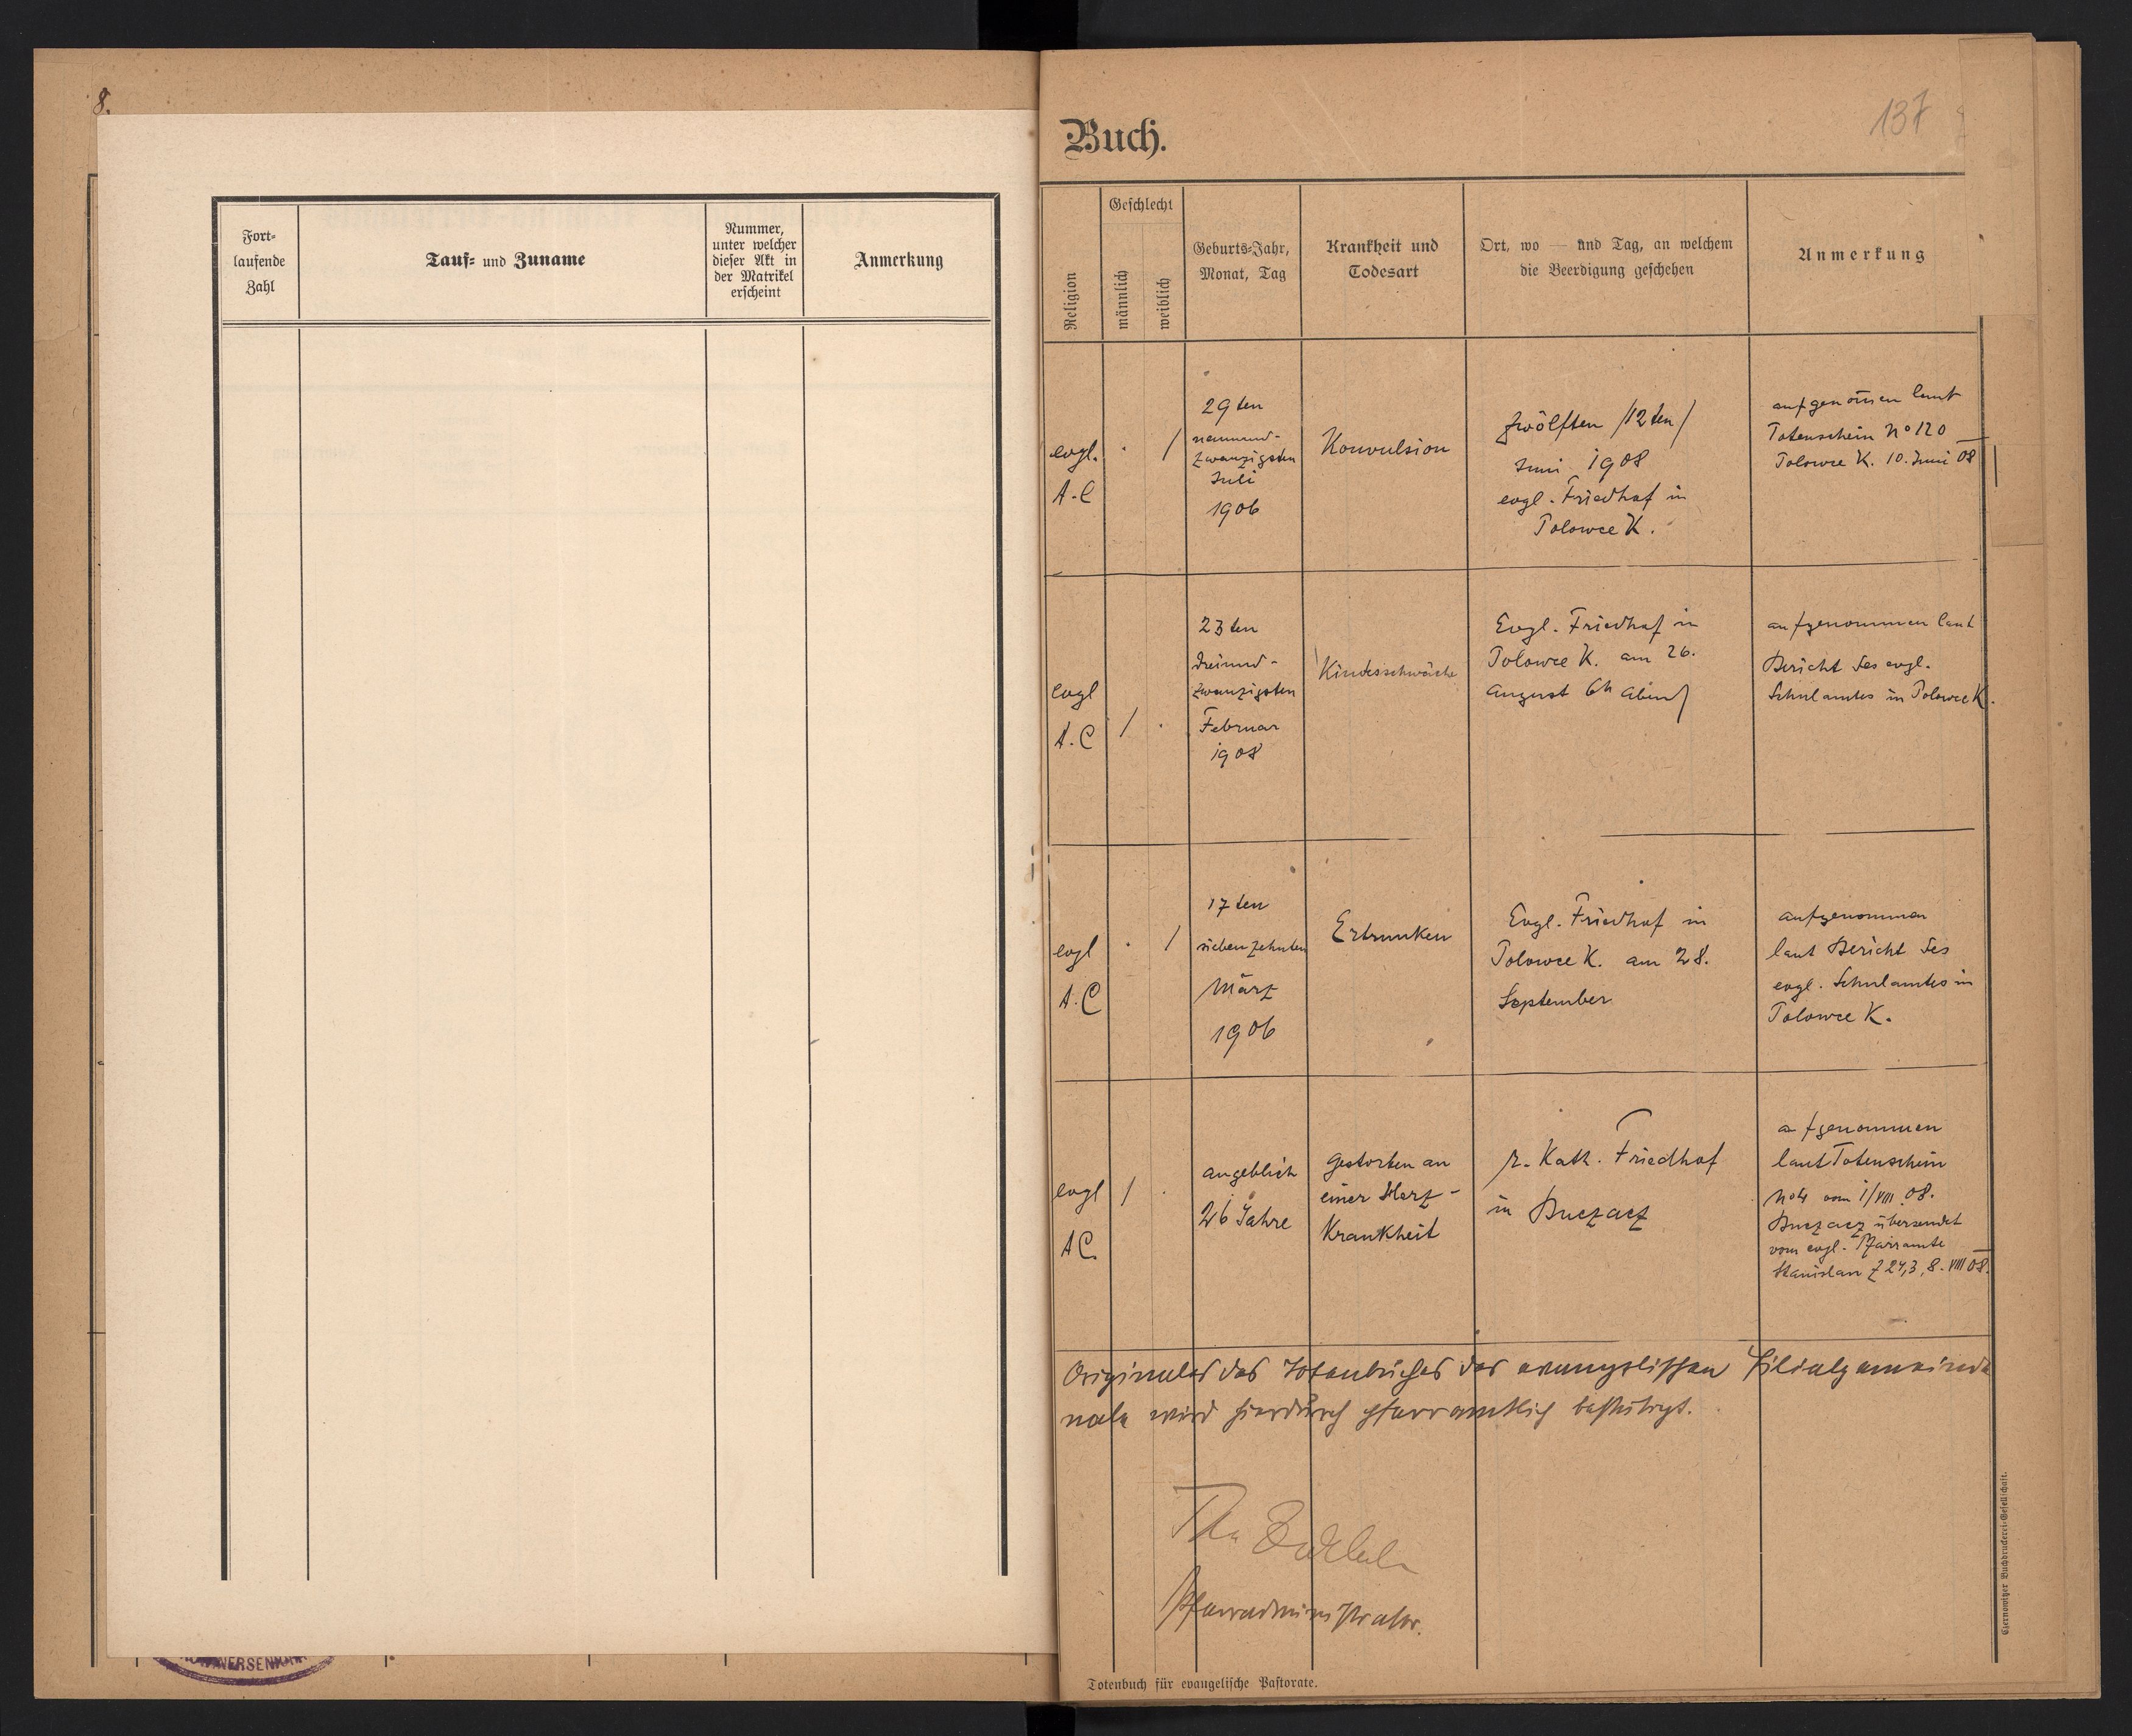 8.
Fort-
laufende
Zahl
Tauf- und Zuname
Nummer,
unter welcher
dieser Akt in
der Matrikel
erscheint
Anmerkung
137
Buch.
Religion
Geschlecht
männlich
weiblich
Geburts-Jahr,
Monat, Tag
Krankheit und
Todesart
Ort, wo — und Tag, an welchem
die Beerdigung geschehen
Anmerkung
evgl.
A.C
.
/
29ten
neunund-
zwanzigsten
Juli
1906
Konvulsion
zwölften /12ten/
Juni 1908
evgl. Friedhof in
Polowce K.
aufgenom̄en laut
Totenschein No 120
Polowce K. 10. Juni 08
evgl
A.C
/
.
23ten
dreiund-
zwanzigsten
Februar
1908
Kindesschwäche
Evgl. Friedhof in
Polowce K. am 26.
August 6h Abend
aufgenommen laut
Bericht des evgl.
Schulamtes in Polowce K.
evgl
A.C
.
/
17ten
siebenzehnten
März
1906
Ertrunken
Evgl. Friedhof in
Polowce K. am 28.
September
aufgenommen
laut Bericht des
evgl. Schulamtes in
Polowce K.
evgl
AC.
/
.
angeblich
26 Jahre
gestorben an
einer Herz-
Krankheit
r. Kath. Friedhof
in Buczacz
aufgenommen
laut Totenschein
vom 1/VIII 08.
Buczacz übersendet
vom evgl. Pfarramte
Stanislau Z 243, 8. VIII 08.
Originales des Totenbuches der evangelischen Filialgemeinde
wird hierdurch pfarramtlich bestätigt.
Pfarradministrator.
Totenbuch für evangelische Pastorate.
Czernowitzer Buchdruckerei-Gesellschaft.